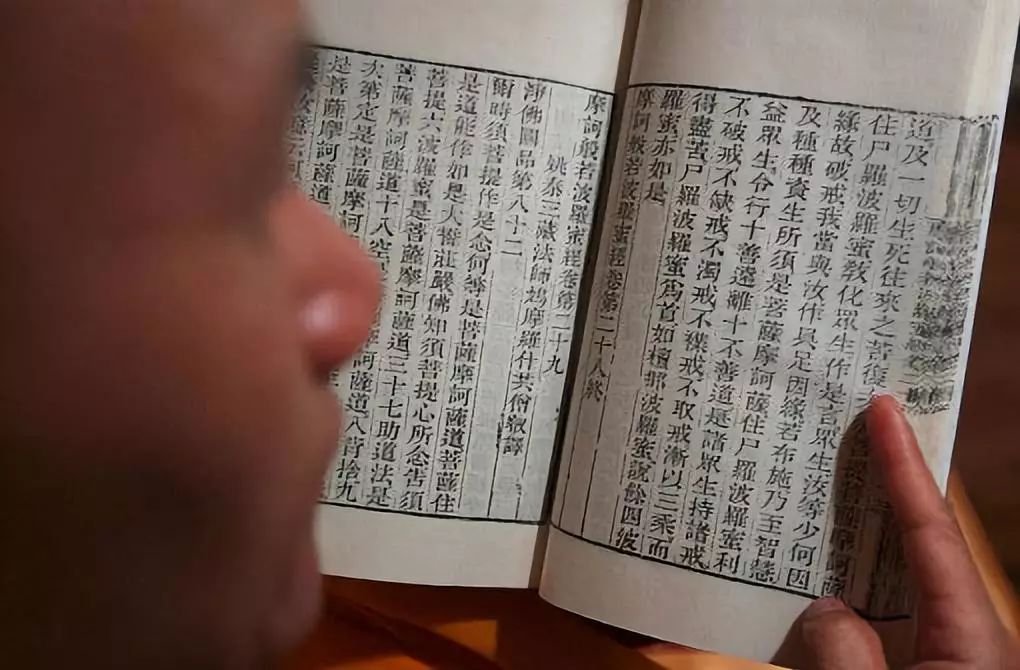 道及一切生死往來之苦復
住尸羅波羅蜜教化眾生作是言眾生汝等少何因
緣故破戒我當與汝作具足因緣若布施乃至智慧
及種種資生所須是菩薩摩訶薩住尸羅波羅蜜利
益眾生令行十善遠離十不善道是諸眾生持諸戒
不破戒不缺戒不濁戒不雜戒不取戒漸以三乘而
得盡苦尸羅波羅蜜爲首如檀那波羅蜜說餘四波
羅蜜亦如是
摩訶般若波羅蜜經卷第二十八終
摩訶般若波羅蜜經卷第二十九
姚秦三藏法師鳩摩羅什共僧叡譯
淨佛國品第八十二
爾時須菩提作是念何等是菩薩摩訶薩道菩薩住
是道能作如是大誓莊嚴佛知須菩提心所念告須
菩提六波羅蜜是菩薩摩訶薩道三十七助道法是
菩薩摩訶薩道十八空訶薩道八背捨九
次第定是菩薩摩訶
是菩薩摩訶薩道